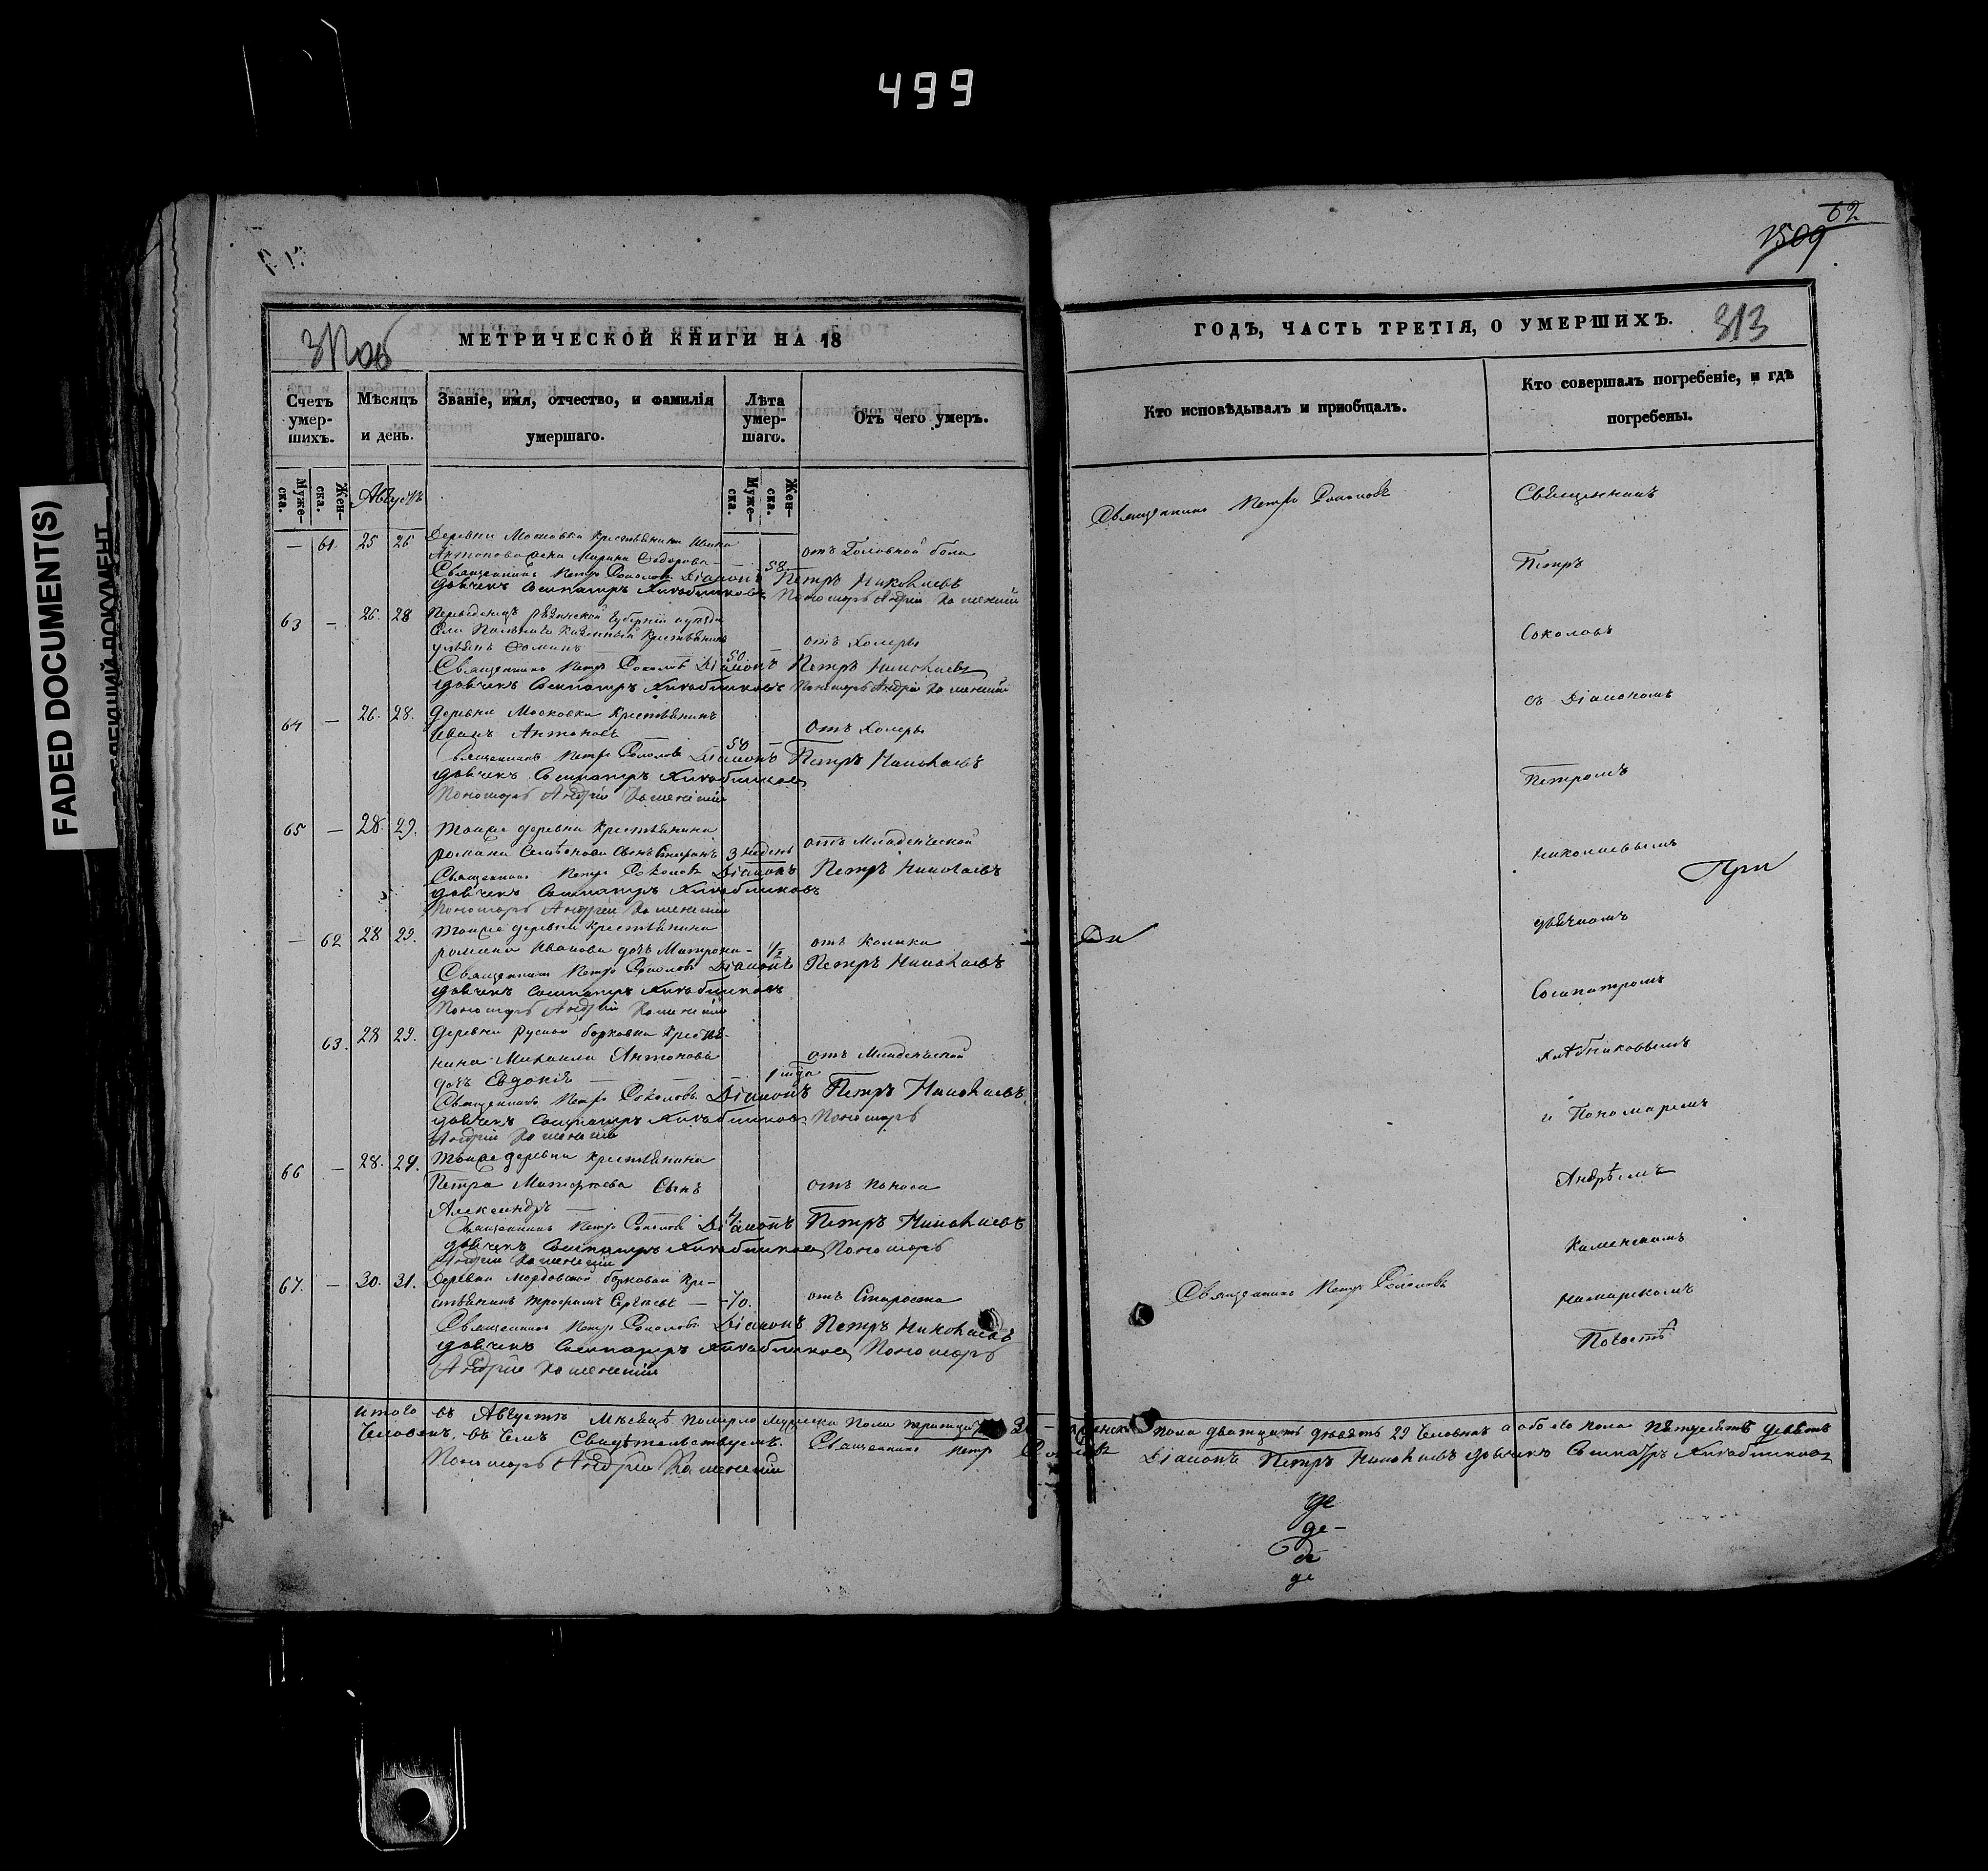 499
FADED DOCUMENT(S)
62
1509
МЕТРИЧЕСКОЙ КНИГИ НА 18
ГОДЪ, ЧАСТЬ ТРЕТІЯ, О УМЕРШИХЪ.
313
Счетъ умер-шихъ.
Мѣсяцъ и день.
Званіе, имя, отчество, и фамилія умершаго.
Лѣта умер-шаго.
Отъ чего умеръ.
Кто исповѣдывалъ и пріобщалъ.
Кто совершалъ погребеніе, и гдѣ погребены.
Муже-ска.
Жен-ска.
Августъ
Муже-ска.
Жен-ска.
— 61 25 26 Деревни Московки Крестьянина Ивана
Антонова жена Марина Федорова — 58 отъ Головной боли
Священникъ Петръ Соколовъ Діаконъ Петръ Николаевъ
дьячекъ Сосипатръ Хлѣбниковъ Пономарь Андрей Каменскій
63 — 26. 28 Переведенецъ Рязанской Губерніи
Казенный Крестьянинъ
Фоминъ 50. — отъ Холеры
Священникъ Петръ Соколовъ Діаконъ Петръ Николаевъ
дьячекъ Сосипатръ Хлѣбниковъ Пономарь Андрей Каменскій
64 — 26. 28. Деревни Московки Крестьянинъ
Иванъ Антоновъ 50 — отъ Холеры
Священникъ Петръ Соколовъ Діаконъ Петръ Николаевъ
дьячекъ Сосипатръ Хлѣбниковъ
Пономарь Андрей Каменскій
65 — 28. 29. Тойже деревни Крестьянина
Романа Семенова сынъ 3 недель отъ Младенческой
Священникъ Петръ Соколовъ Діаконъ Петръ Николаевъ
дьячекъ Сосипатръ Хлѣбниковъ
Пономарь Андрей Каменскій
— 62 28 29. Тойже деревни Крестьянина
Романа Иванова дочь Матрона — 1/2 отъ Колики
Священникъ Петръ Соколовъ Діаконъ Петръ Николаевъ
дьячекъ Сосипатръ Хлѣбниковъ
Пономарь Андрей Каменскій
63. 28 29. Деревни Русской борковки Крестья-
нина Михаила Антонова отъ Младенческой
дочь Евдокія — 1 года
Священникъ Петръ Соколовъ Діаконъ Петръ Николаевъ
дьячекъ Сосипатръ Хлѣбниковъ Пономарь
Андрей Каменскій
66 — 28. 29. Тойже деревни Крестьянина
Петра сынъ отъ Поноса
Александръ —
Священникъ Петръ Соколовъ Діаконъ Петръ Николаевъ
дьячекъ Сосипатръ Хлѣбниковъ Пономарь
Андрей Каменскій
67. — 30. 31. Деревни Мордовской борковки Кре-
стьянинъ Трофимъ Сергѣевъ — 70. отъ Старости
Священникъ Петръ Соколовъ Діаконъ Петръ Николаевъ
дьячекъ Сосипатръ Хлѣбниковъ Пономарь
Андрей Каменскій
Священникъ Петръ Соколовъ
Священникъ Петръ Соколовъ
Священникъ
Петръ
Соколовъ
съ Діакономъ
Петромъ
Николаевымъ
При
дьячкомъ
Сосипатромъ
Хлѣбниковымъ
и Пономаремъ
Андрѣемъ
Каменскимъ
Погостѣ
Итого въ Августѣ мѣсяцѣ померло мужеска пола тритцать 30 — женска пола дватцать девять 29 Человѣкъ а обоего пола Пятдесятъ девять
Человѣкъ, въ чемъ свидѣтельствуемъ. Священникъ Петръ Соколовъ Діаконъ Петръ Николаевъ дьячекъ Сосипатръ Хлѣбниковъ
Пономарь Андрей Каменскій
де
де-
де